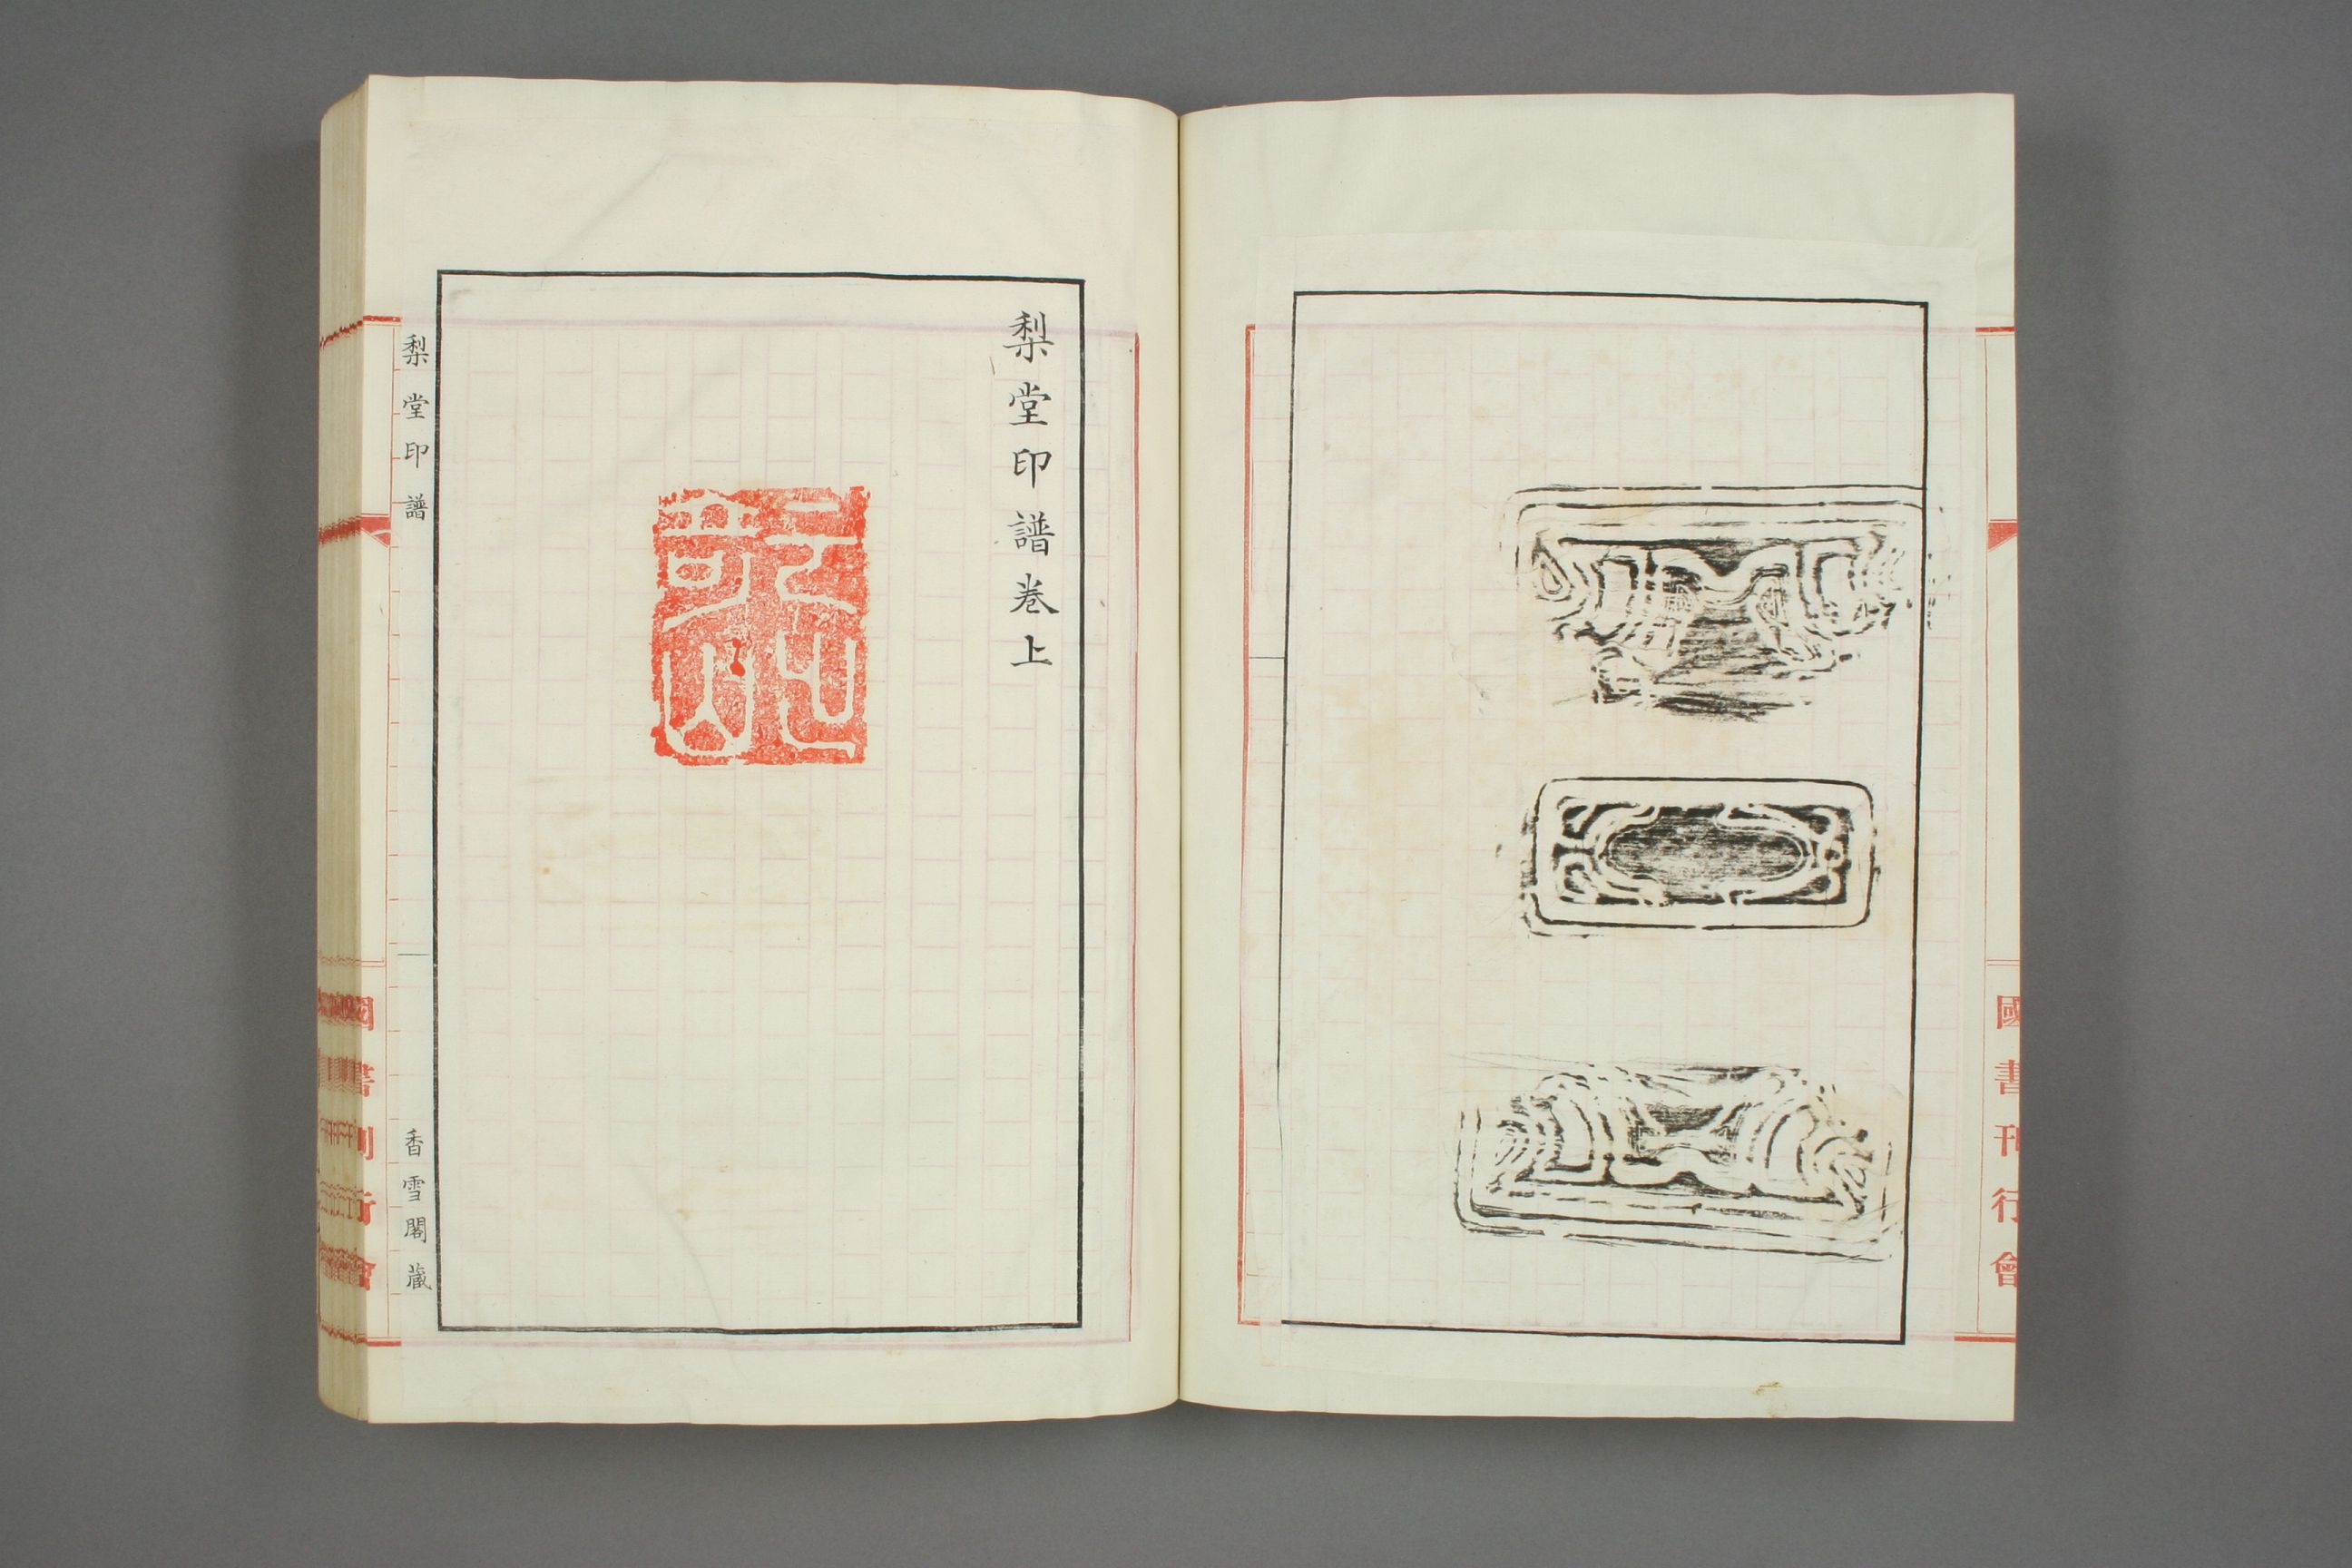 國書刊行會
梨堂印譜卷上
梨堂印譜
香雪閣藏
國書刊行會